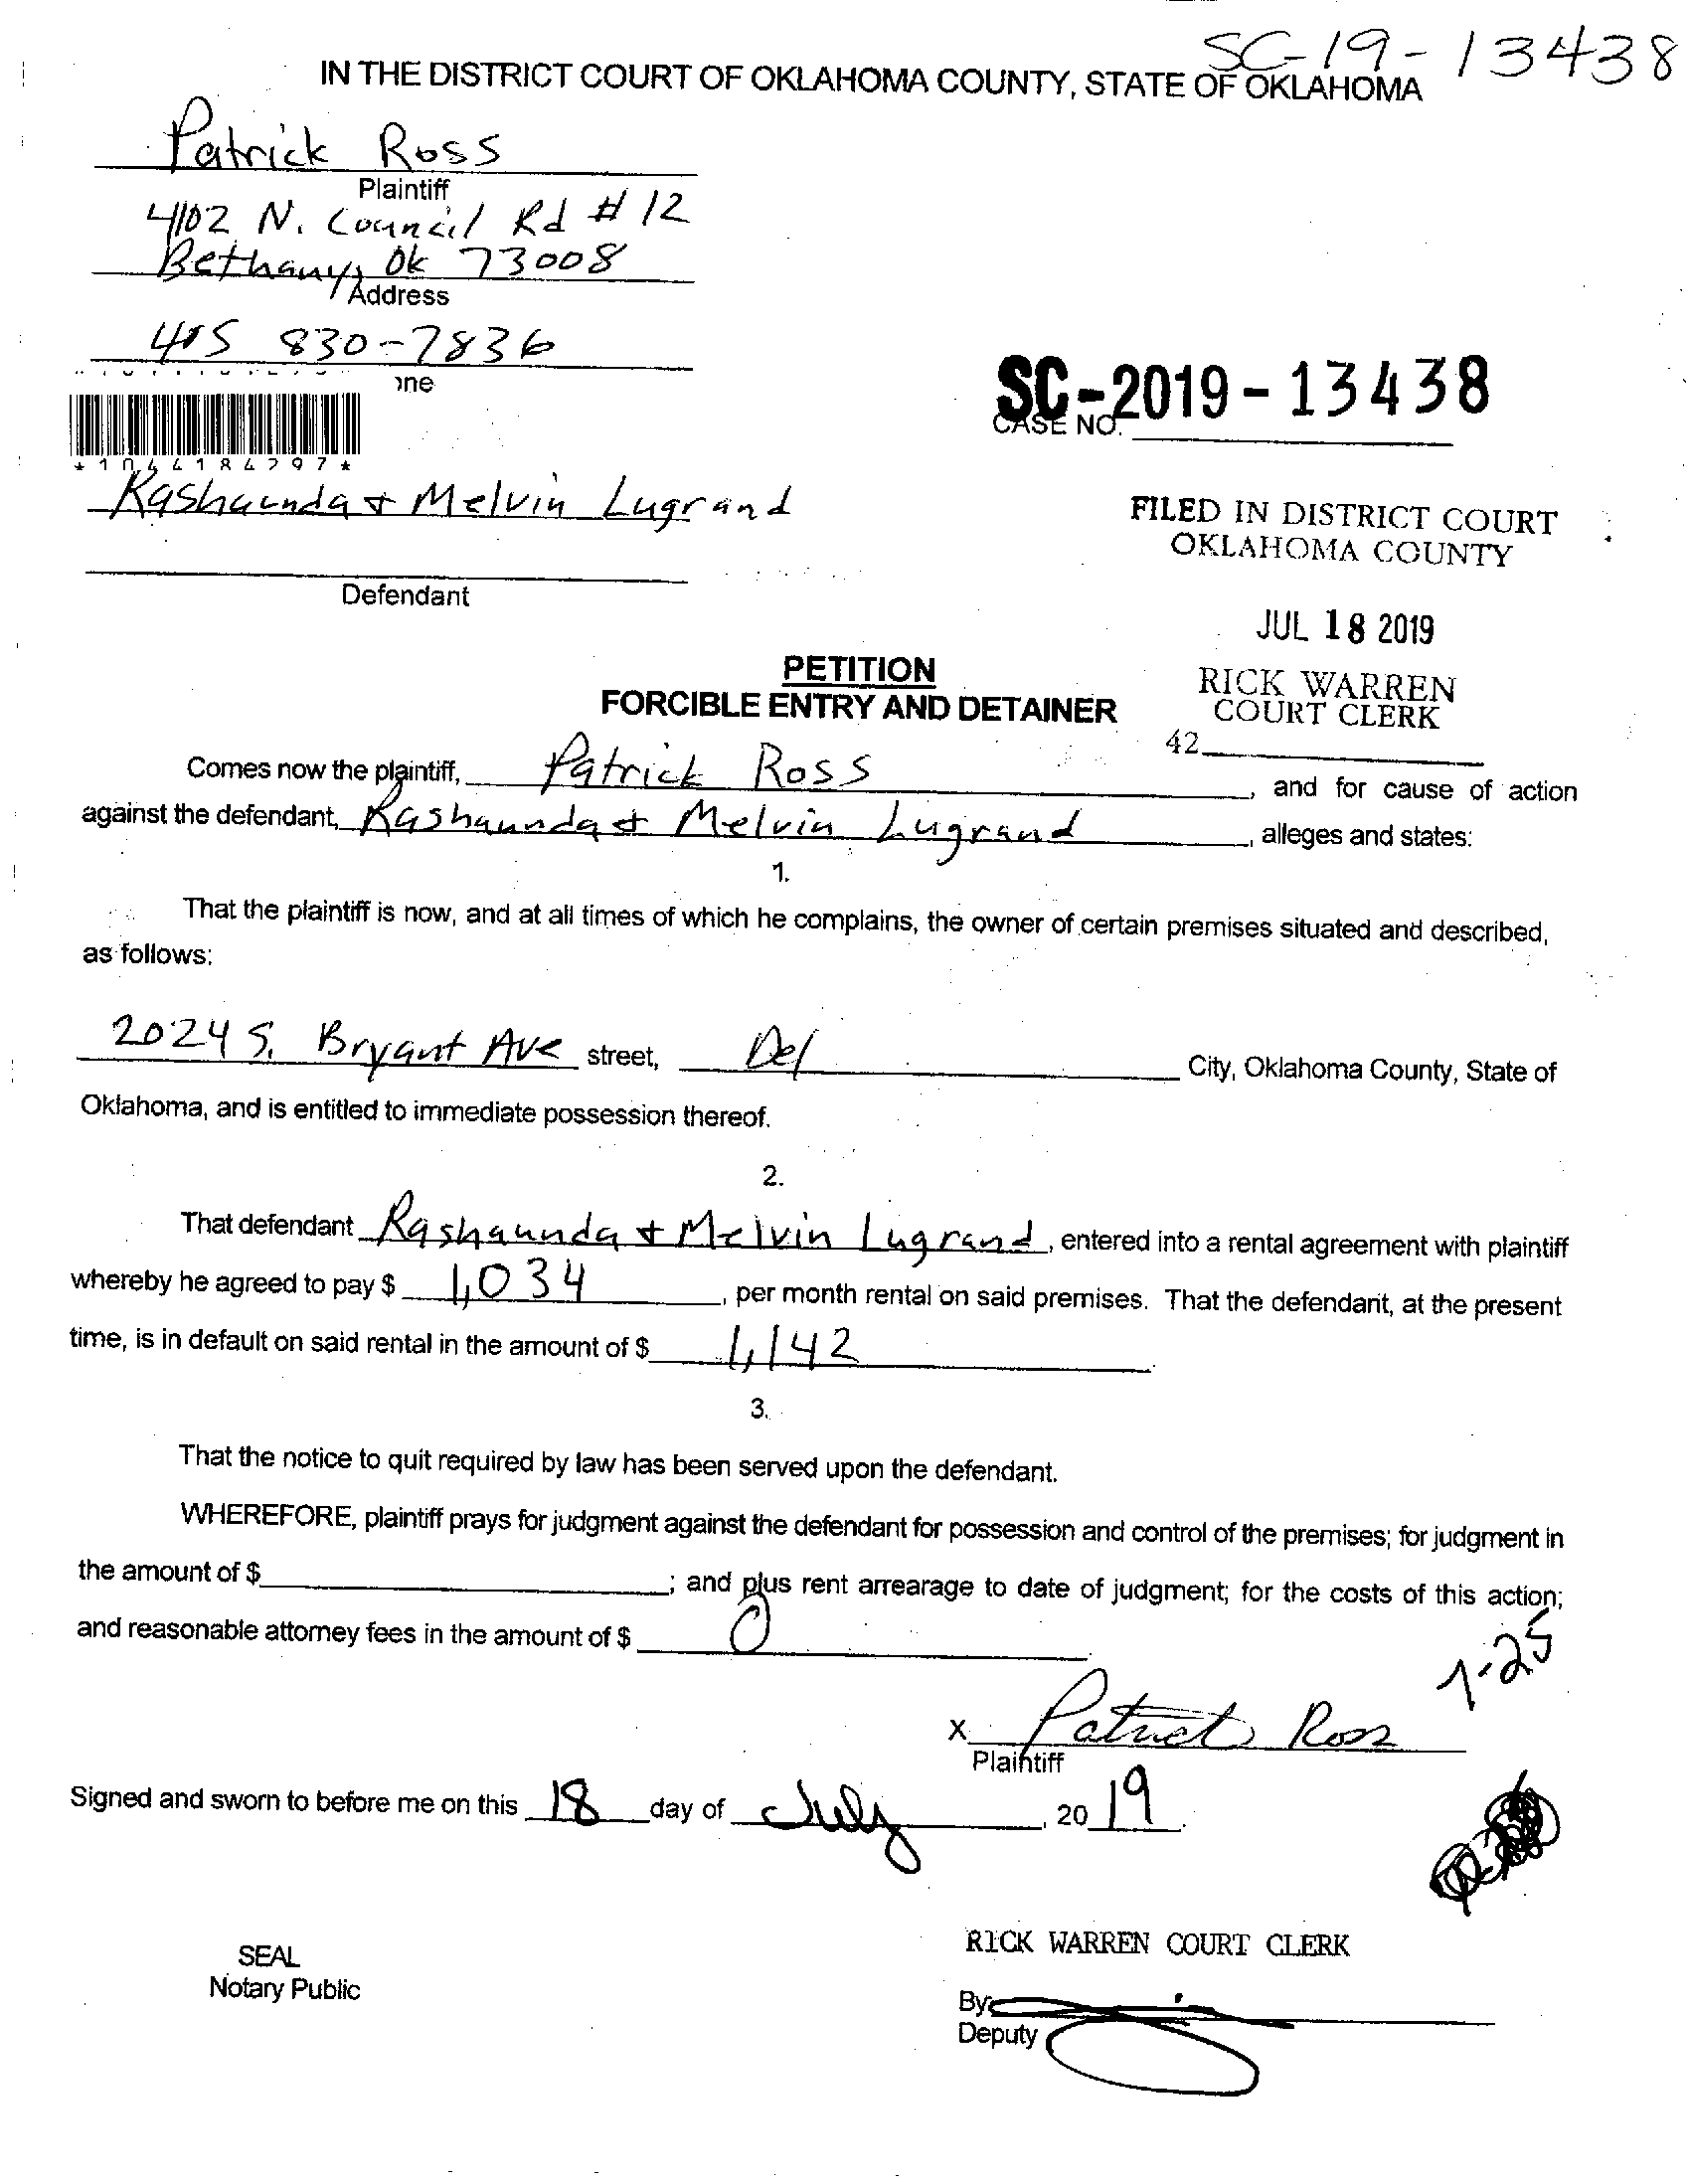 SC-19-13438
IN THE DISTRICT COURT OF OKLAHOMA COUNTY, STATE OF OKLAHOMA
Patrick Ross
Plaintiff
4102 N. Council Rd # 12
Bethany, Ok 73008
Address
405 830-7836
one
SC-2019-13438
CASE NO.
*1044184297*
Rashaunda & Melvin Lugrand
Defendant
FILED IN DISTRICT COURT
OKLAHOMA COUNTY
JUL 18 2019
RICK WARREN
COURT CLERK
42
PETITION
FORCIBLE ENTRY AND DETAINER
Comes now the plaintiff, Patrick Ross, and for cause of action
against the defendant, Rashaunda & Melvin Lugrand, alleges and states:
1.
That the plaintiff is now, and at all times of which he complains, the owner of certain premises situated and described,
as follows:
2024 S. Bryant Ave street, Del City, Oklahoma County, State of
Oklahoma, and is entitled to immediate possession thereof.
2.
That defendant Rashaunda & Melvin Lugrand, entered into a rental agreement with plaintiff
whereby he agreed to pay $ 1,034, per month rental on said premises. That the defendant, at the present
time, is in default on said rental in the amount of $ 1,142.
3.
That the notice to quit required by law has been served upon the defendant.
WHEREFORE, plaintiff prays for judgment against the defendant for possession and control of the premises; for judgment in
the amount of $ ; and plus rent arrearage to date of judgment; for the costs of this action;
and reasonable attorney fees in the amount of $ 0.
7-25
X Patrick Ross
Plaintiff
Signed and sworn to before me on this 18 day of July, 2019.
SEAL
Notary Public
RICK WARREN COURT CLERK
By
Deputy